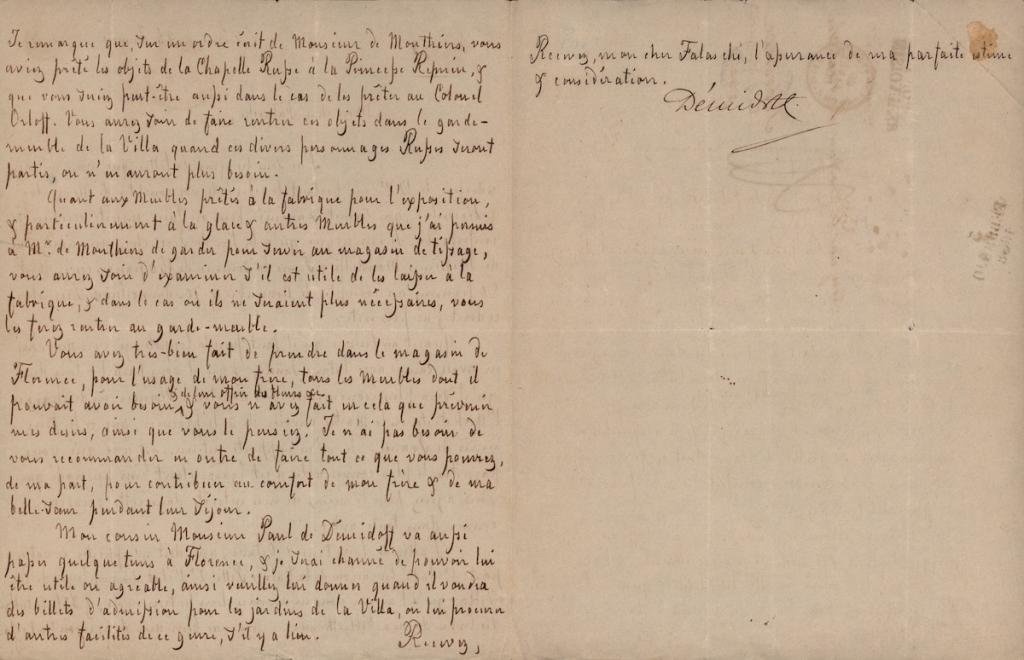 Je remarque que, sur un ordre écrit de Monsieur de Monthiers, vous
aviez prêté les objets de la Chapelle Russe à la Princesse Repnin, &
que vous seriez peut-être aussi dans le cas de les prêter au Colonel
Orloff. Vous aurez soin de faire rentrer ces objets dans le garde-
meuble de la Villa quand ces divers personnages Russes seront
partis, ou n'en auront plus besoin.
Quant aux Meubles prêtés à la fabrique pour l'exposition,
& particulièrement à la glace & autres Meubles que j'ai promis
à Mr. de Monthiers de garder pour servir au magasin de tissage,
vous aurez soin d'examiner s'il est utile de les laisser à la
fabrique, & dans le cas où ils ne seraient plus nécessaires, vous
les ferez rentrer au garde-meuble.
Vous avez très-bien fait de prendre dans le magasin de
Florence, pour l'usage de mon frère, tous les meubles dont il
& de leur offrir des fleurs &c
pouvait avoir besoin, & vous n'avez fait en cela que prévenir
mes desirs, ainsi que vous le pensiez. Je n'ai pas besoin de
vous recommander en outre de faire tout ce que vous pourrez,
de ma part, pour contribuer au comfort de mon frère & de ma
belle-sœur pendant leur séjour.
Mon cousin Monsieur Paul de Démidoff va aussi
passer quelque tems à Florence, & je serai charmé de pouvoir lui
être utile ou agréable, ainsi veuillez lui donner quand il voudra
des billets d'admission pour les jardins de la Villa, ou lui procurer
d'autres facilités de ce genre, s'il y a lieu.
Recevez,
Recevez, mon cher Falaschi, l'assurance de ma parfaite estime
& considération.
Démidoff